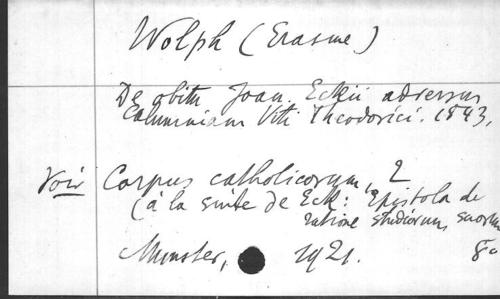 Wolph (Erasme)
De obitu Joan. Eckii adversus
Calumniam Viti Theodorici. 1543.
Voir Corpus catholicorum, 2
(à la suite de Eck: Epistola de
ratione studiorum suorum
Munster, 1921. 8°